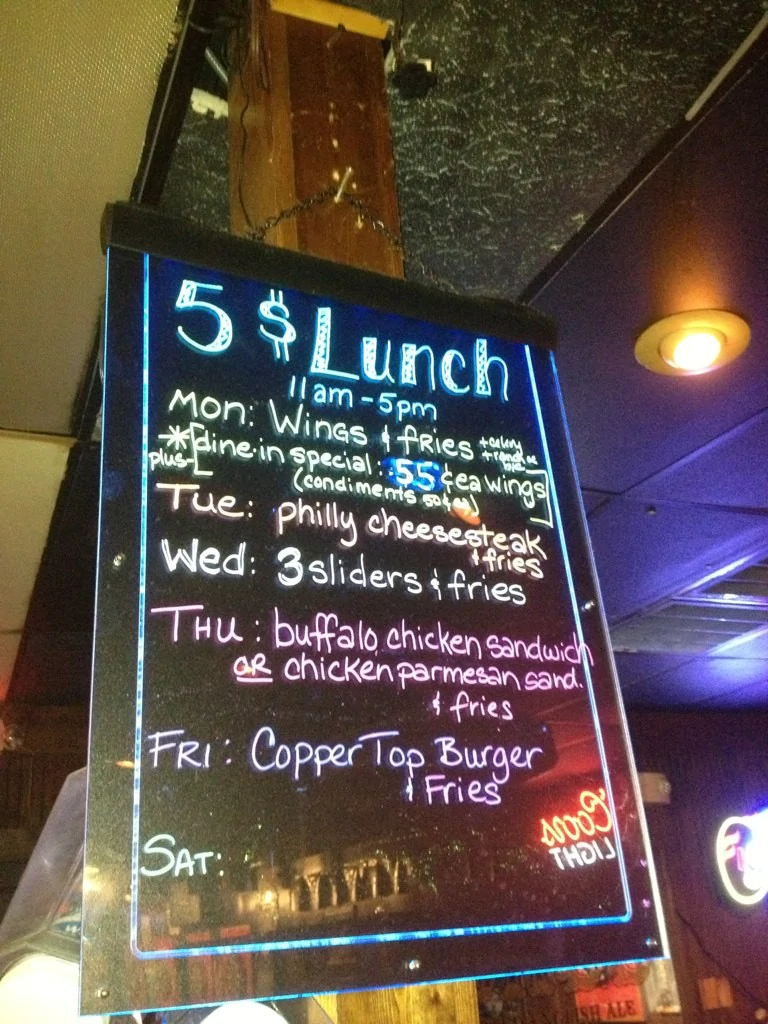 5 $ Lunch
11am - 5pm
Mon: Wings & fries + celery
+ ranch or
*[dine-in special: 55¢ ea wings]
plus- (condiments 50¢ ea)
Tue: philly cheesesteak
& fries
Wed: 3 sliders & fries
THU: buffalo chicken sandwich
OR chicken parmesan sand.
& fries
FRI: CopperTop Burger
& Fries
Coors
LIGHT
SAT:
SH ALE